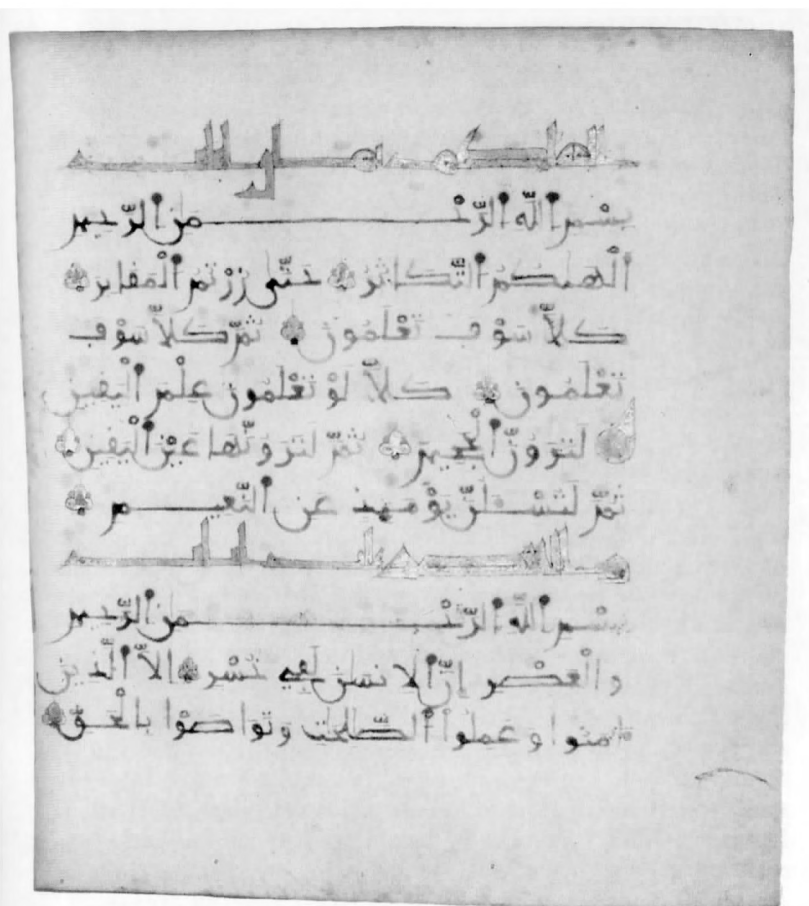 بسم الله الرحمن الرحيم
ألهيكم التكاثر حتى زرتم المقابر
كلا سوف تعلمون ثم كلا سوف
تعلمون كلا لو تعلمون علم اليقين
لترون الجحيم ثم لترونها عين اليقين
ثم لتسلن يوميذ عن النعيم
بسم الله الرحمن الرحيم
والعصر إن الانسن لفي خسر إلا الذين
ءامنوا وعملوا الصلحت وتواصوا بالحق